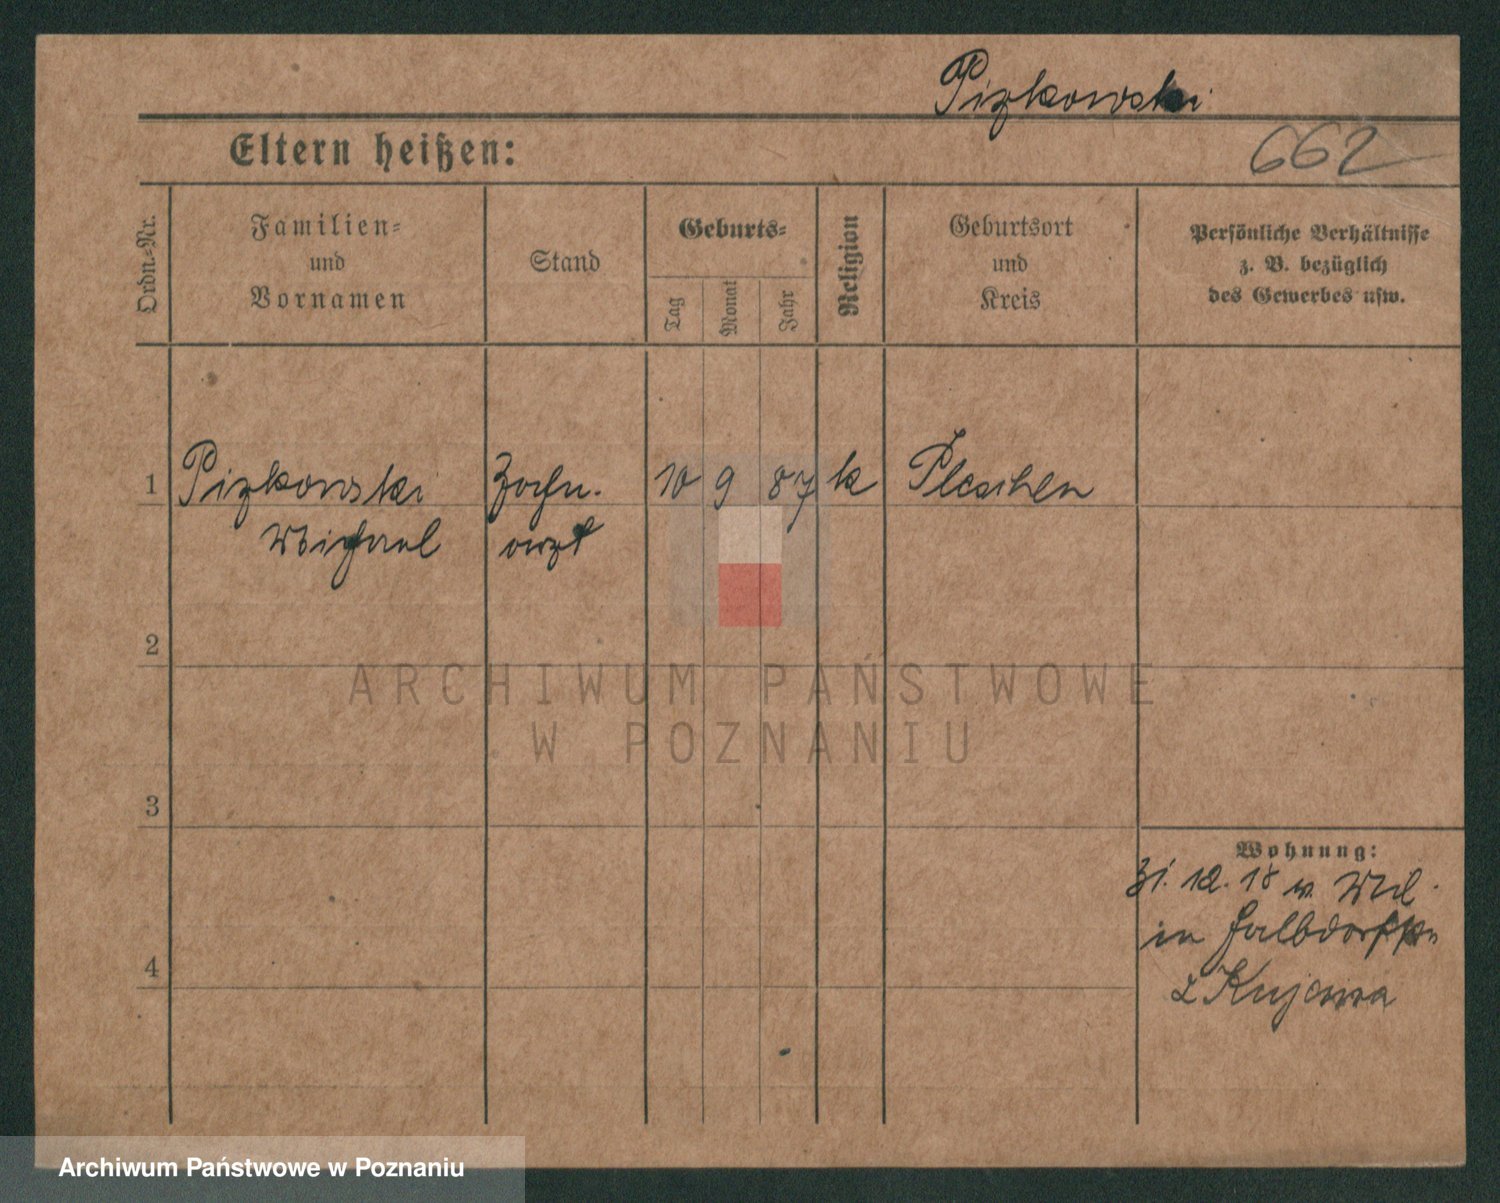 Pizkowski
Eltern heißen:
662
Ordn.-Nr.
Familien-
und
Vornamen
Stand
Geburts-
Tag
Monat
Jahr
Religion
Geburtsort
und
Kreis
Persönliche Verhältnisse
z. B. bezüglich
des Gewerbes usw.
1
Pizkowski
Michael
Zahn-
arzt
10
9
87
k
Pleschen
2
ARCHIWUM PAŃSTWOWE
W POZNANIU
3
Wohnung:
31. 12. 18 v. Mil.
in
4
z Kujawa
Archiwum Państwowe w Poznaniu